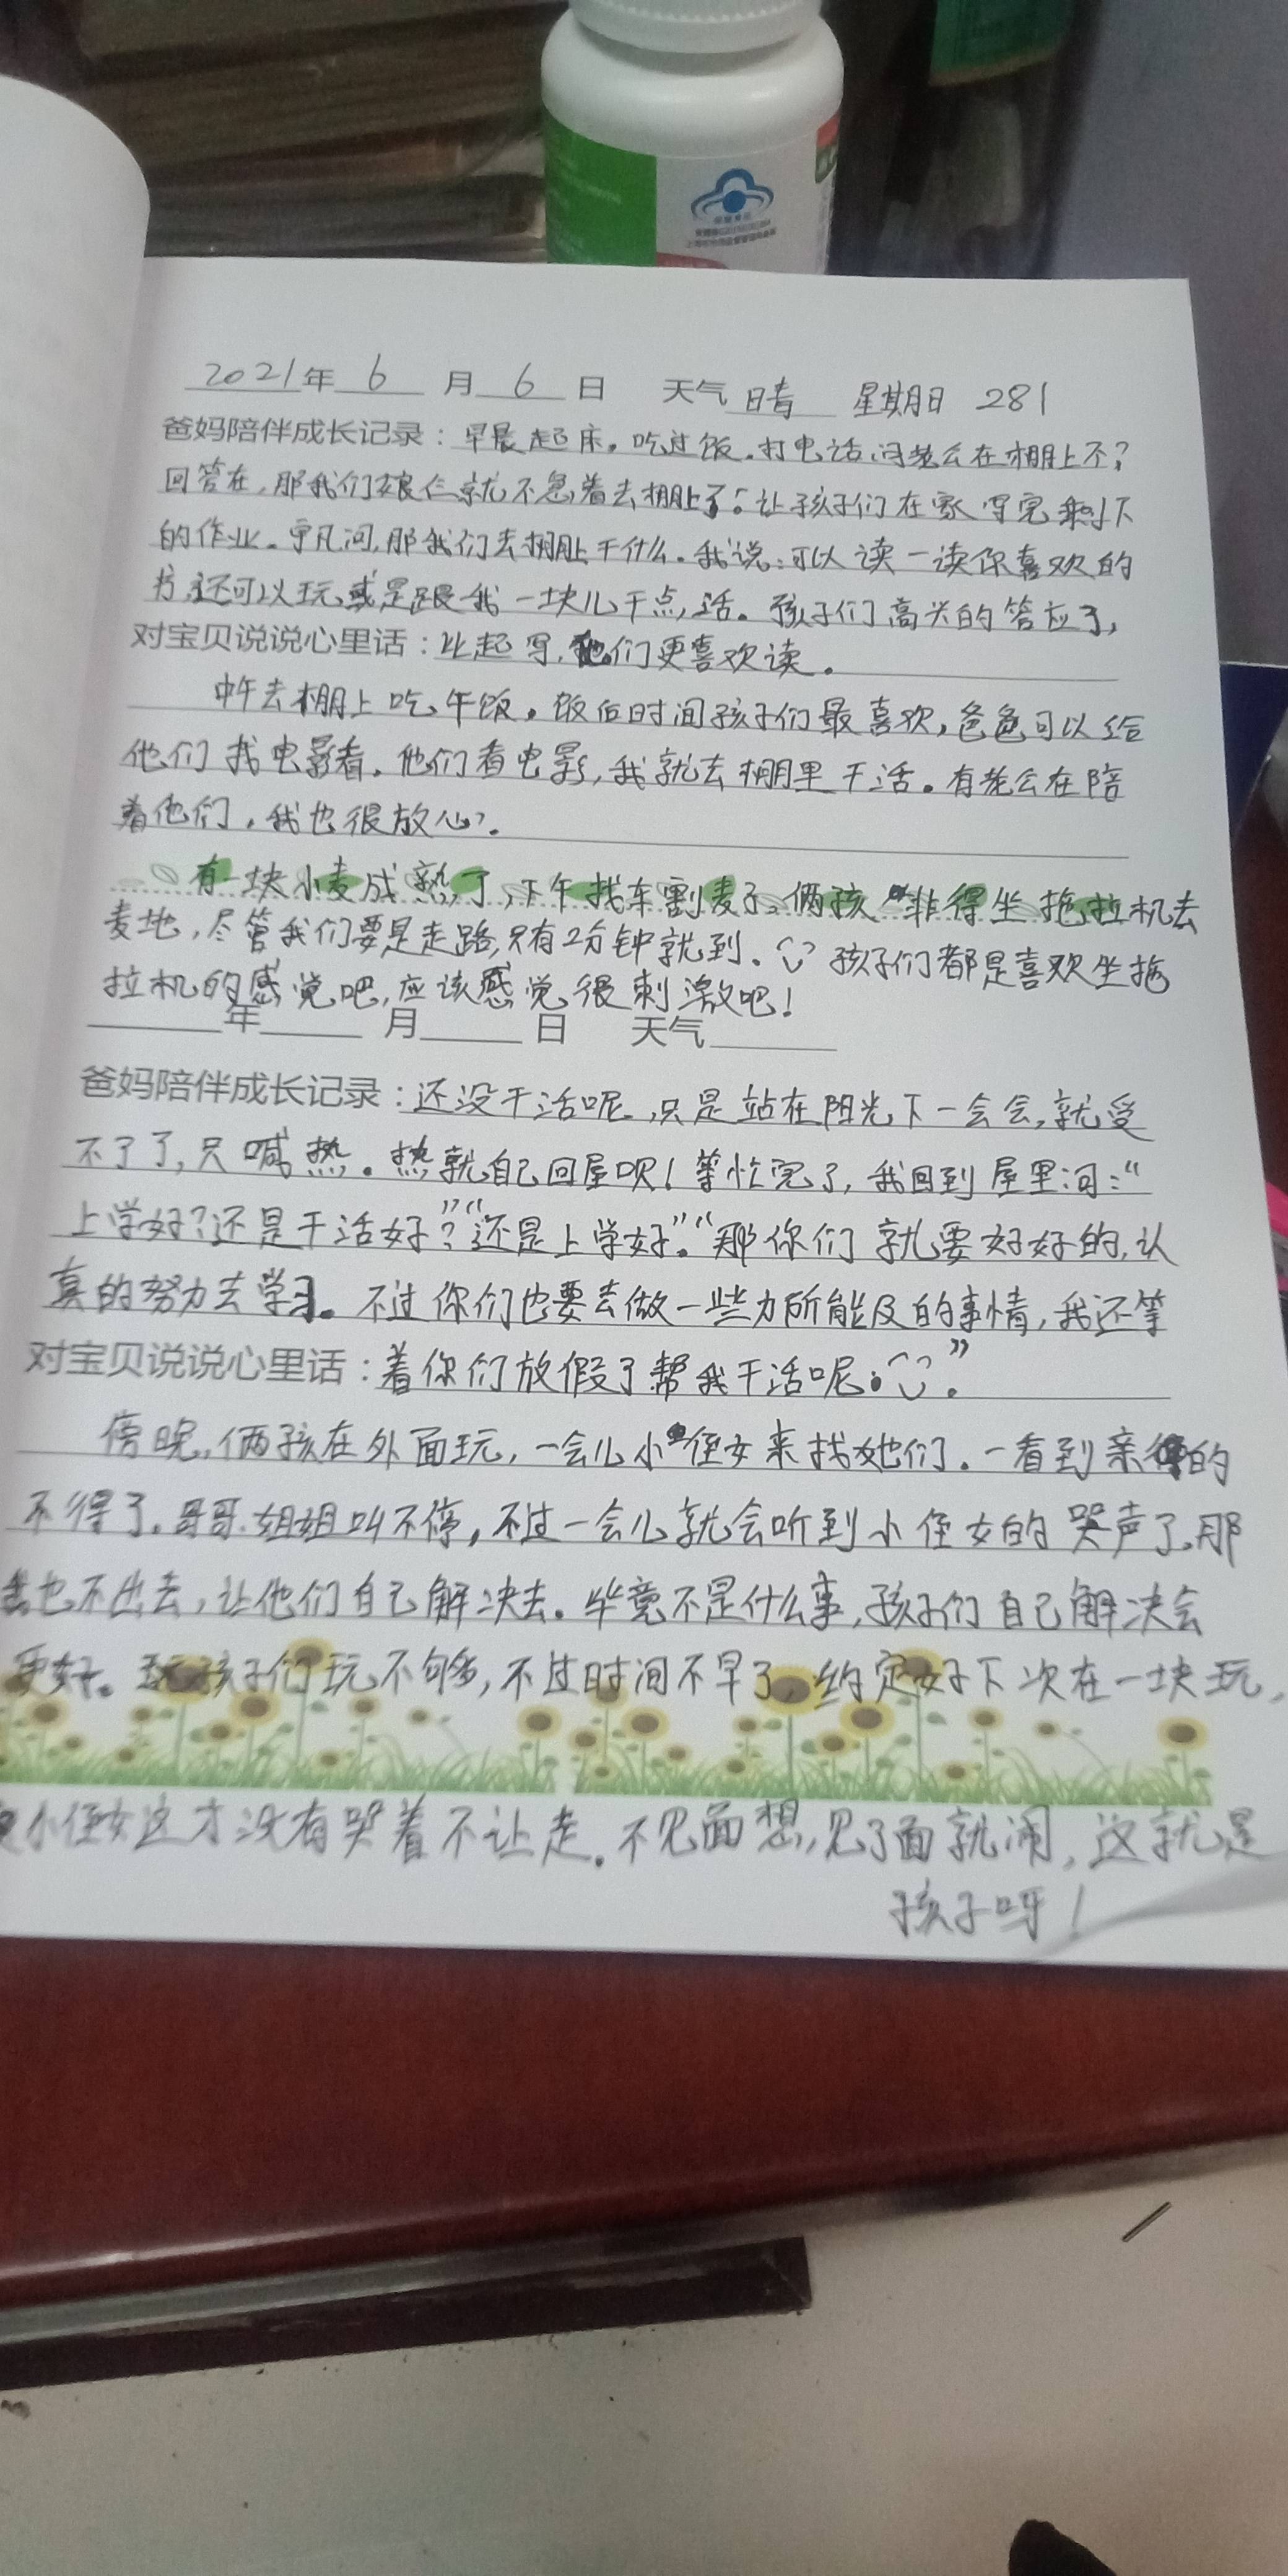 2021年 6 月 6 日 天气 晴 星期日 281
爸妈陪伴成长记录：早晨起床。吃过饭。打电话问老公在棚上不？
回答在，那我们娘仨就不急着去棚上了。让孩子们在家写完剩下
的作业。宇凡问，那我们去棚上干什么。我说：可以读一读你喜欢的
书，还可以玩，或是跟我一块儿干点活。孩子们高兴的答应了，
对宝贝说说心里话：比起写，他们更喜欢读。
中午去棚上吃午饭。饭后时间孩子们最喜欢，爸爸可以给
他们找电影看。他们看电影，我就去棚里干活。有老公在陪
着他们，我也很放心。
有一块小麦成熟了，下午找车割麦子。俩孩非得坐拖拉机去
麦地，尽管我们要是走路，只有2分钟就到。孩子们都是喜欢坐拖
拉机的感觉吧，应该感觉很刺激吧！
年 月 日 天气
爸妈陪伴成长记录：还没干活呢，只是站在阳光下一会会，就受
不了了，只喊热。热就自己回屋呗！等忙完了，我回到屋里问：“
上学好？还是干活好？”“还是上学好。”“那你们就要好好的，认
真的努力去学习。不过你们也要去做一些力所能及的事情，我还等
对宝贝说说心里话：着你们放假了帮我干活呢。”
傍晚，俩孩在外面玩，一会儿小侄女来找她们。一看到亲的
不得了。哥哥.姐姐叫不停，不过一会儿就会听到小侄女的哭声了。那
我也不出去，让他们自己解决去。毕竟不是什么事，孩子们自己解决会
更好。孩子们玩不够，不过时间不早了，约定好下次在一块玩，
小侄女这才没有哭着不让走。不见面想，见了面就闹，这就是
孩子呀！